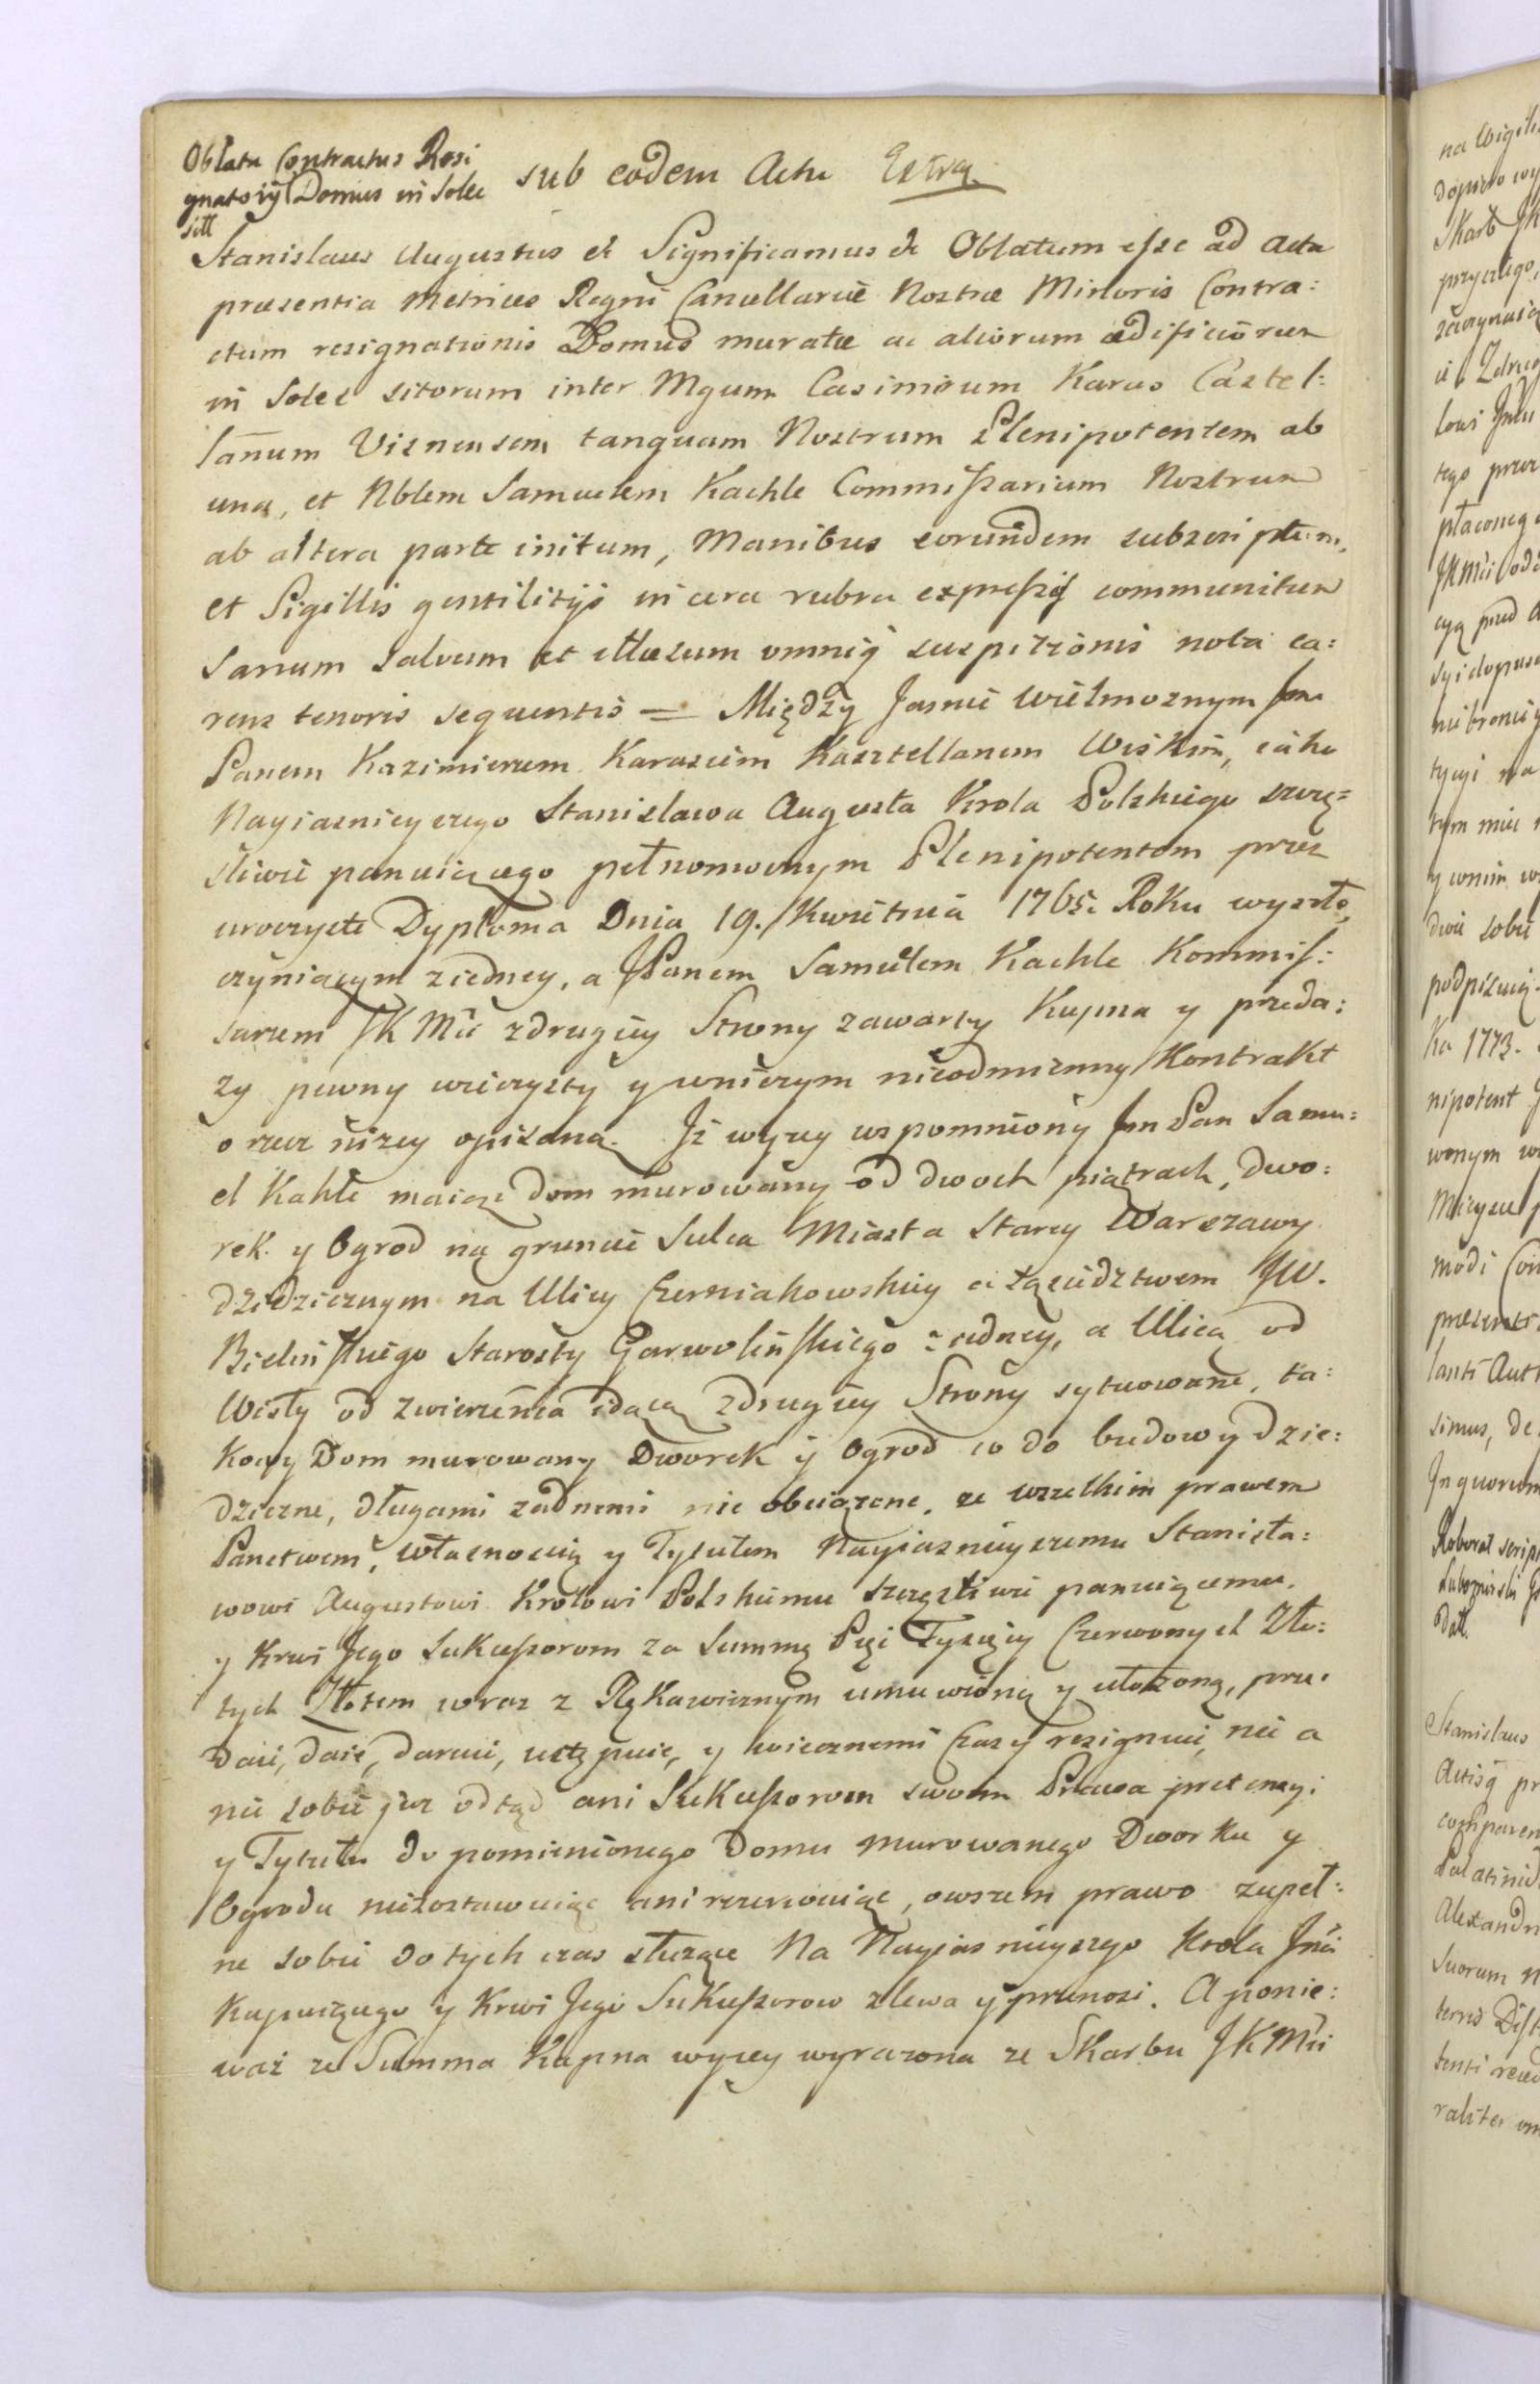 Oblata Contractus Resi
gnatorij Domus in Solec
sitt
sub eodem Actu Extra
Stanislaus Augustus et Significamus et Oblatum esse ad Acta
præsentia Metrices Regni Cancellariæ Nostræ Minoris Contra:
ctum resignationis Domus muratæ ac aliorum ædificiorum
in Solec sitorum inter Mgum Casimirum Karas Castel:
lanum Visnensem tanquam Nostrum Plenipotentem ab
una, et Nblem Samuelem Kachle Commissarium Nostrum
ab altera parte initum, Manibus eorundem subscriptum,
et Sigillis gentilitijs in cera rubra expressis communitum
Sanum Salvum et illæsum omniq suspitionis nota ca:
rens tenoris sequentis = Między Jasnie Wielmoznym Jmc
Panem Kazimierzem Karasiem Kasztellanem Wiskim, iako
Nayiasnieyszego Stanisława Augusta Krola Polskiego szczę=
śliwie panuiącego pełnomocnym Plenipotentem przez
uroczyste Dyploma Dnia 19. Kwietnia 1765. Roku wyszłe,
czyniącym ziedney, a JPanem Samuelem Kachle Kommis:
sarzem JK Mci zdrugiey Strony zawarty Kupna y przeda:
zy pewny wieczysty y wniczym nieodmienny Kontrakt
o rzecz niżey opisaną. Iż wyzey wspomniony Jmc Pan Samu:
el Kahle maiąc dom murowany od dwoch piątrach, dwo:
rek y Ogrod na gruncie Sulca Miasta Starey Warszawy
dziedzicznym na Ulicy Czerniakowskiey sąsiedztwem JW.
Bielińskiego Starosty Garwolińskiego ziedney, a Ulicą od
Wisły od zwierzeńca idącą zdrugiey Strony sytuowane, ta:
kowy Dom murowany Dworek y Ogrod co do budowy dzie:
dziczne, długami zadnemi nie obciążone, ze wszelkim prawem
Panstwem, własnością y Tytułem Nayiasnieyszemu Stanisła:
wowi Augustowi Krolowi Polskiemu szczęśliwie panuiącemu,
y Krwi Jego Sukcessorom za Summę Pięć Tysięcy Czerwonych Zło:
tych Złotem wraz z Rękawicznym umuwioną y ułożoną, prze:
daie, daie, daruie, ustępuie, y wiecznemi Czasy resignuie, nic a
nic sobie juz odtąd ani Sukcessorom swoim Prawa pretensyi
y Tytułu do pomienionego Domu murowanego Dworku y
Ogrodu niezostawuiąc ani rezerwuiąc, owszem prawo zupeł:
ne sobie dotych czas służące Na Nayiasnieyszego Krola Jmci
Kupuiącego y Krwi Jego Sukcessorow zlewa y przenosi. A ponie:
waż ze Summa Kupna wyzey wyrazona ze Skarbu JKMci